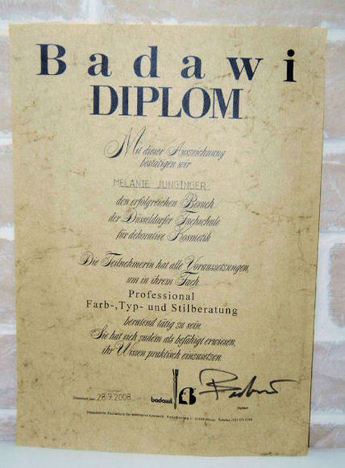 Badawi
DIPLOM
Mit dieser Auszeichnung
bestätigen wir
MELANIE JUNGINGER
den erfolgreichen Besuch
der Düsseldorfer Fachschule
für dekorative Kosmetik
Die Teilnehmerin hat alle Voraussetzungen,
um in ihrem Fach
Professional
Farb-,Typ- und Stilberatung
beratend tätig zu sein.
Sie hat sich zudem als befähigt erwiesen,
ihr Wissen praktisch einzusetzen.
28.9.2008
badawi